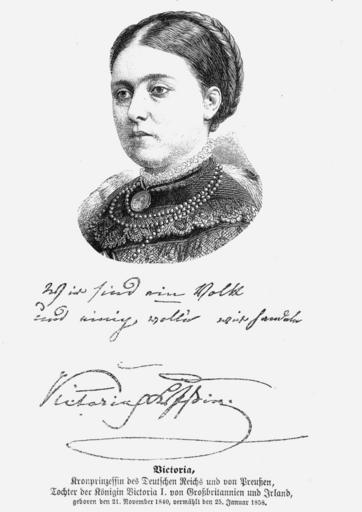 Wir sind ein Volk
und einig woll'n wir handeln
Victoria
Victoria,
Kronprinzessin des Deutschen Reichs und von Preußen,
Tochter der Königin Victoria I. von Großbritannien und Irland,
geboren den 21. November 1840, vermählt den 25. Januar 1858.